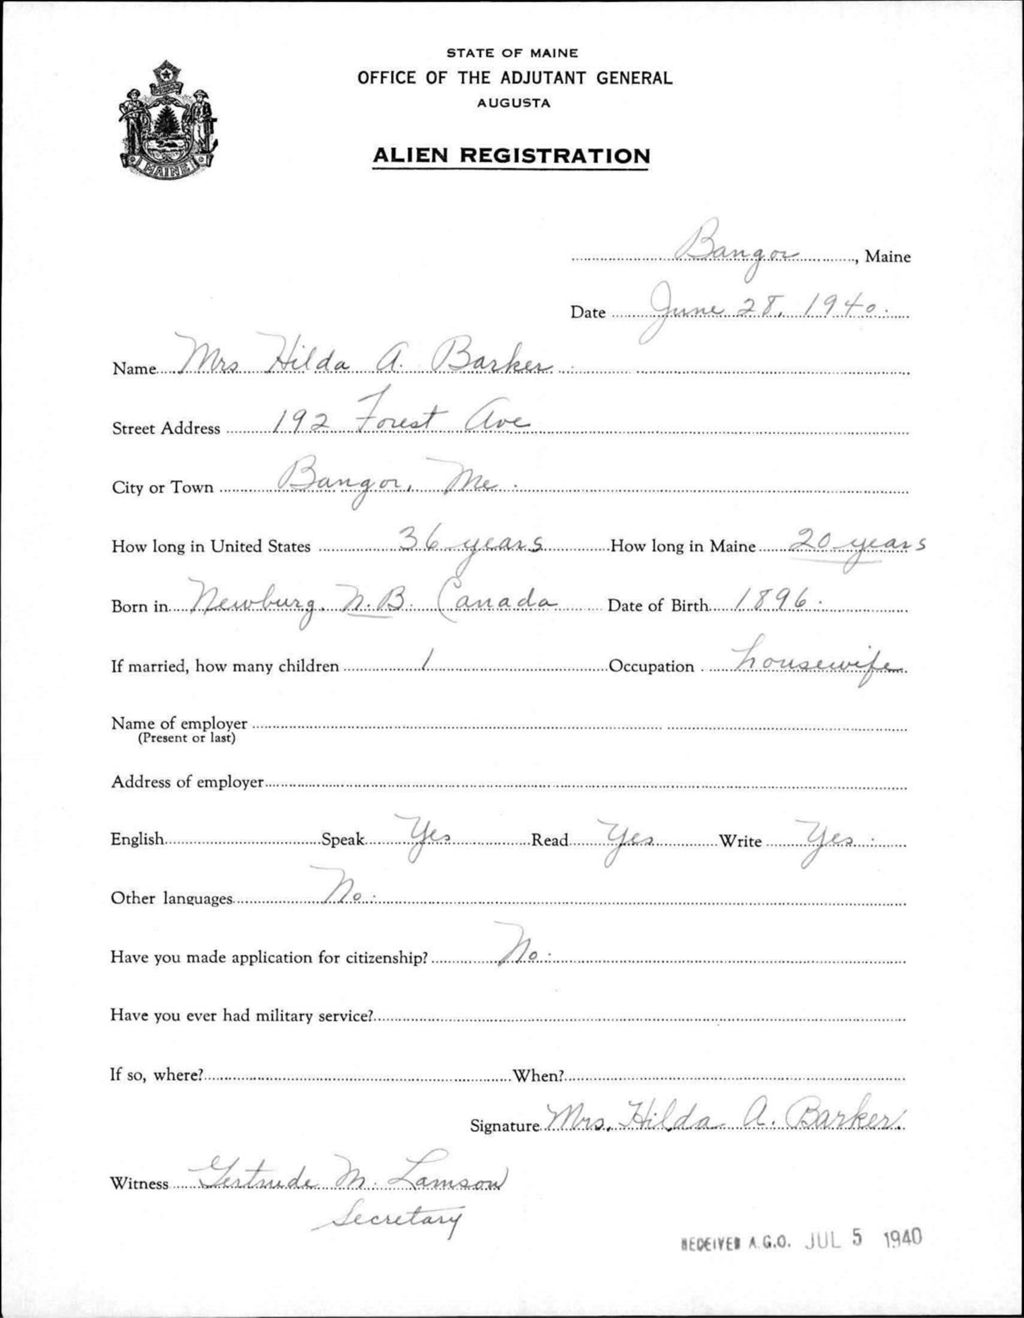 STATE OF MAINE
OFFICE OF THE ADJUTANT GENERAL
AUGUSTA
ALIEN REGISTRATION
MAINE
Bangor, Maine
Date June 28, 1940.
Name Mrs Hilda A. Barker
Street Address 192 Forest Ave
City or Town Bangor, Me.
How long in United States 36 years How long in Maine 20 years
Born in Newburg, N.B. Canada Date of Birth 1896.
If married, how many children 1 Occupation housewife
Name of employer
(Present or last)
Address of employer
English Speak Yes Read Yes Write Yes.
Other languages No.
Have you made application for citizenship? No.
Have you ever had military service?
If so, where? When?
Signature Mrs. Hilda A. Barker.
Witness Gertrude M. Lamson
Secretary
RECEIVED A.G.O. JUL 5 1940